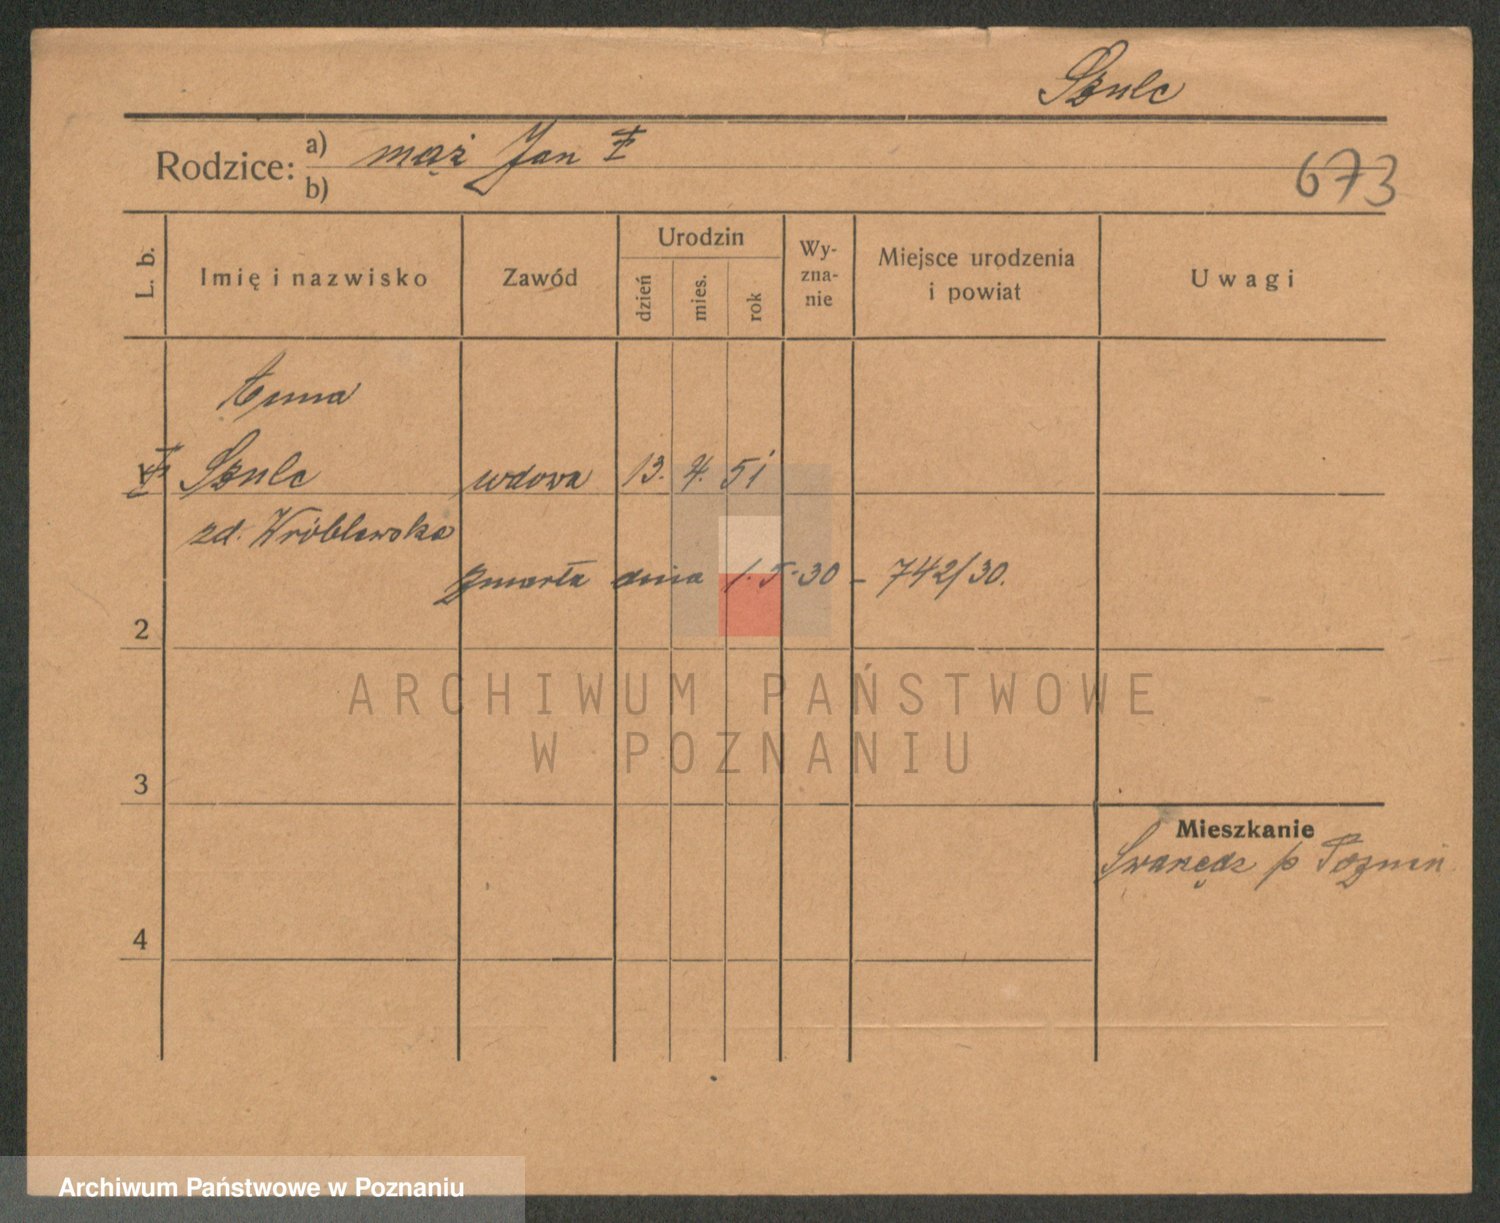 Szulc
Rodzice: a) mąż Jan ‡
b)
673
L. b.
Imię i nazwisko
Zawód
Urodzin
dzień
mies.
rok
Wy-
zna-
nie
Miejsce urodzenia
i powiat
Uwagi
Anna
Szulc wdowa 13. 4. 51
zd. Wróblewska
Zmarła dnia 1.5.30 – 742/30.
2
ARCHIWUM PAŃSTWOWE
W POZNANIU
3
Mieszkanie
Swarzędz p
4
Archiwum Państwowe w Poznaniu